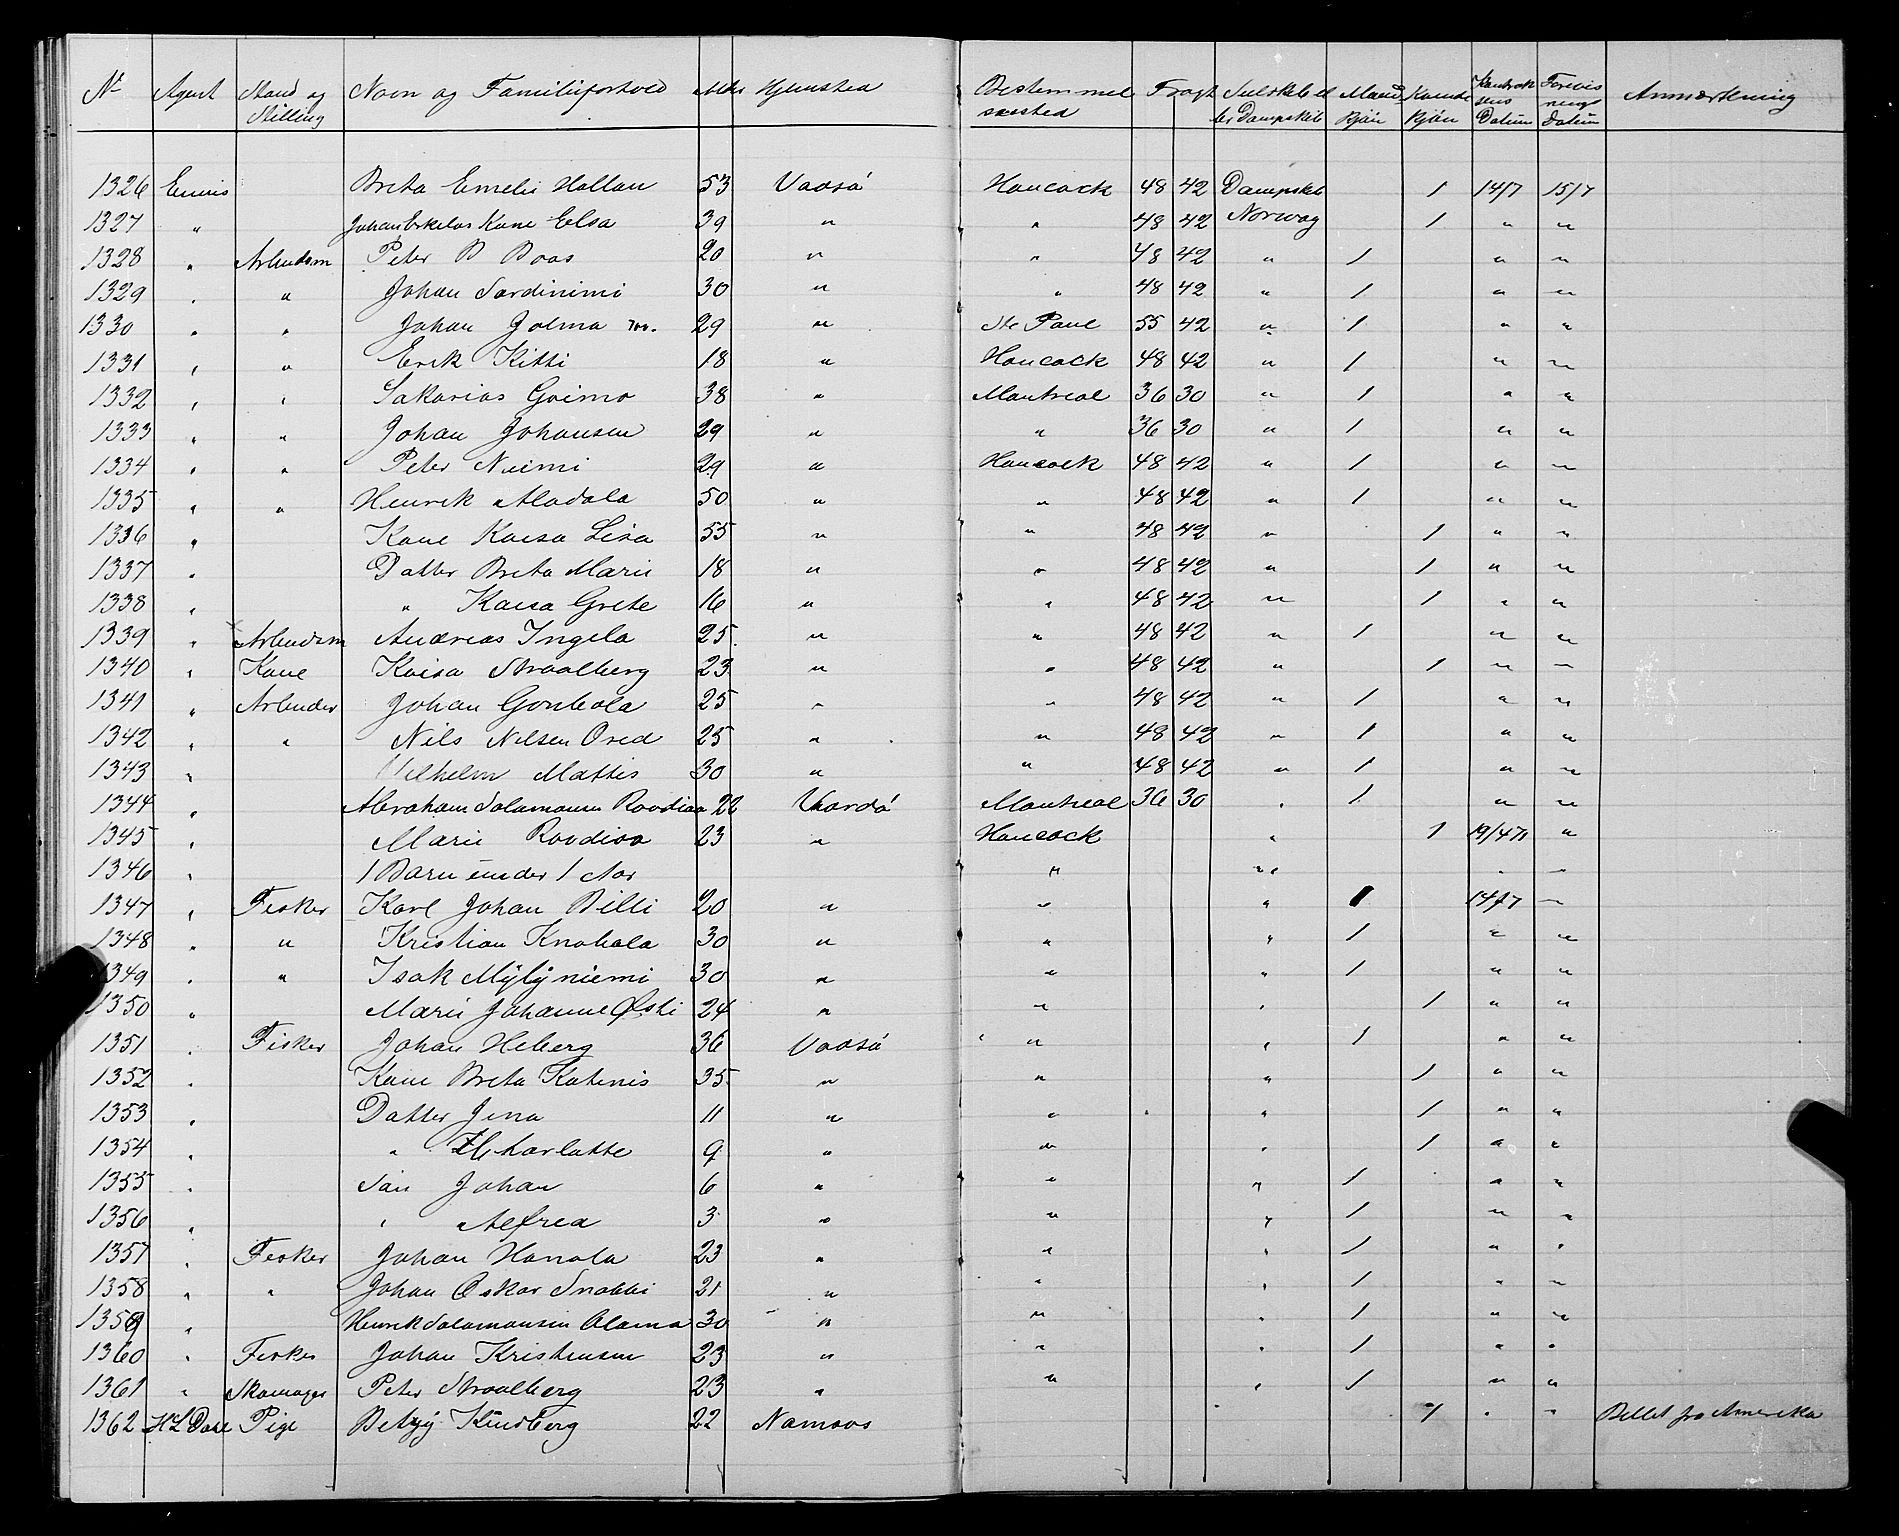 No Agent Stand og Stilling Navn og Familieforhold Alder Hjemsted Bestemmelsessted Fragt Seilskib el ler Dampskib Mandkjön Kvindekjön Kontraktens Datum Forevisnings datum Anmærkning
1326 Ennis Brita Emelie Hallan 53 Vadsö Hancock 48 42 Dampskib 1 14/7 15/7
1327 " Johan Erkelas Kone Elsa 39 " " 48 42 Norway 1 " "
1328 " Arbeidsm Peter B Boas 20 " " 48 42 " 1 " "
1329 " " Johan Sardinimi 30 " " 48 42 " 1 " "
1330 " " Johan Jolma 29 " St Paul 55 42 " 1 " "
1331 " " Erik Kitti 18 " Hancock 48 42 " 1 " "
1332 " " Sakarias Goimo 38 " Montreal 36 30 " 1 " "
1333 " " Johan Johansen 29 " " 36 30 " 1 " "
1334 " " Peter Niemi 29 " Hancock 48 42 " 1 " "
1335 " " Henrik Aladala 50 " " 48 42 " 1 " "
1336 " Kone Kaisa Lisa 55 " " 48 42 " 1 " "
1337 " Datter Brita Marie 18 " " 48 42 " 1 " "
1338 " " Kaisa Grete 16 " " 48 42 " 1 " "
1339 " Arbeidsm Andreas Ingela 25 " " 48 42 " 1 " "
1340 " Kone Kaisa Straalberg 23 " " 48 42 " 1 " "
1341 " Arbeider Johan Gonkola 25 " " 48 42 " 1 " "
1342 " " Nils Nilsen Ored 25 " " 48 42 " 1 " "
1343 " Vilhelm Mattis 30 " " 48 42 " 1 " "
1344 " Abraham Salamonsen Roodioa 22 Vardö Montreal 36 30 " 1 " "
1345 " Marie Roodioa 23 " Hancock " 1 19/4 71 "
1346 " 1 Barn under 1 Aar " " " "
1347 " Fisker Karl Johan Billi 20 " " " 1 14/7 "
1348 " " Kristian Knahala 30 " " " 1 " "
1349 " " Isak Mylyniemi 30 " " " 1 " "
1350 " Marie Johanne Østi 24 " " " 1 " "
1351 " Fisker Johan Heberg 36 Vadsö " " 1 " "
1352 " Kone Brita Katinis 35 " " " 1 " "
1353 " Datter Jena 11 " " " 1 " "
1354 " " Charlotte 9 " " " 1 " "
1355 " Sön Johan 6 " " " 1 " "
1356 " " Alfred 3 " " " 1 " "
1357 " Fisker Johan Hanola 23 " " " 1 " "
1358 " " Johan Oskar Snabbi 21 " " " 1 " "
1359 " Henrik Salamonsen Alama 30 " " " 1 " "
1360 " Fisker Johan Kristensen 23 " " " 1 " "
1361 " Skomager Peter Straalberg 23 " " " 1 " "
1362 H L Dahl Pige Betzy Kindberg 22 Namsos 1 " " Billet fra Amerika